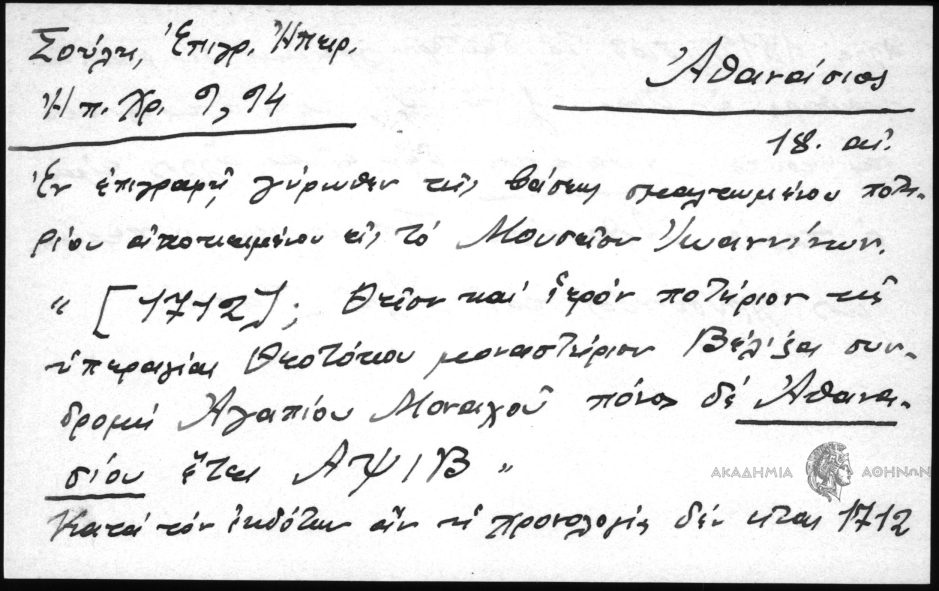 Σούλη, Ἐπιγρ. Ἠπειρ.
Ἠπ. Χρ. 9, 94
Ἀθανάσιος
18. αἰ.
Ἐν ἐπιγραφῇ γύρωθεν τῆς βάσεως σμαλτωμένου ποτη-
ρίου ἀποκειμένου εἰς τὸ Μουσεῖον Ἰωαννίνων.
" [1712]; Θεῖον καί ἱερόν ποτήριον τῆς
ὑπεραγίας Θεοτόκου μοναστήριον Βέλιξας συν-
δρομή Ἀγαπίου Μοναχοῦ πόνος δέ Ἀθανα-
σίου ἔτει ΑΨΙΒ "
ΑΚΑΔΗΜΙΑ ΑΘΗΝΩΝ
Κατά τόν ἐκδότην ἄν ἡ χρονολογία δέν εἶναι 1712